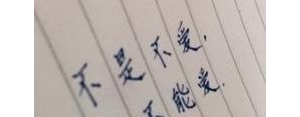 不是不爱，
不能爱.